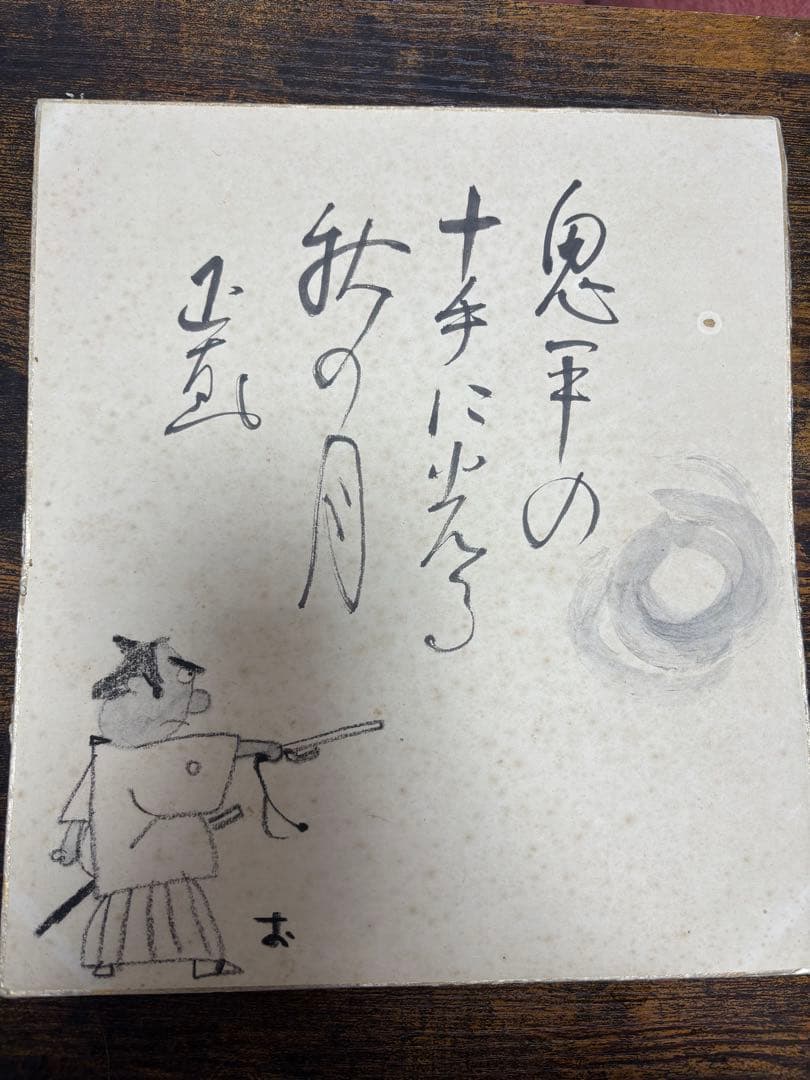 鬼平の
十手に光る
秋の月
正直
お